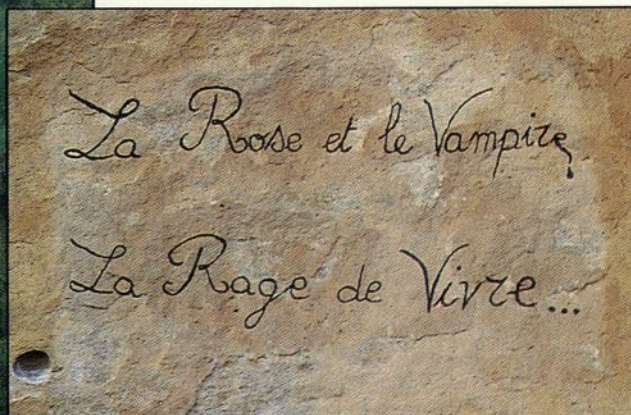 La Rose et le Vampire
La Rage de Vivre...